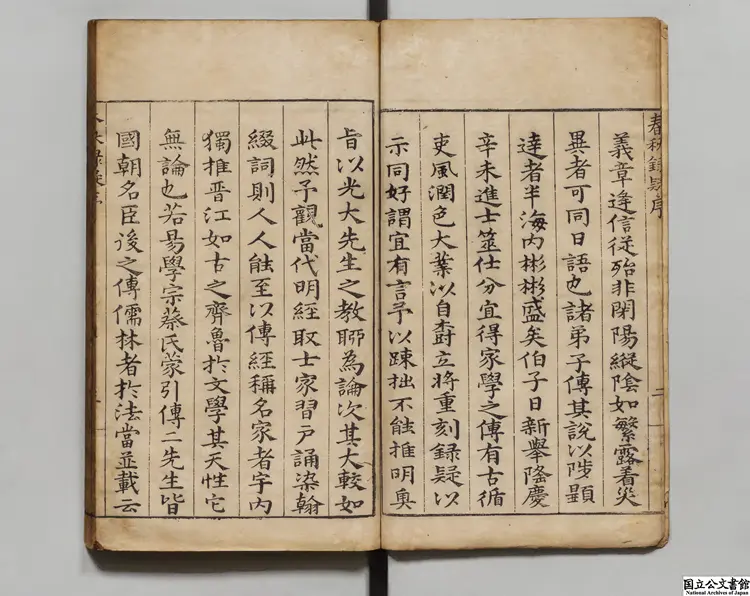 春秋錄疑序
義章逢信從殆非閉陽縱陰如繁露着災
異者可同日語也諸弟子傳其說以陟顯
達者半海內彬彬盛矣伯子日新舉隆慶
辛未進士筮仕分宜得家學之傳有古循
吏風潤色大業以自樹立將重刻録疑以
示同好謂宜有言予以踈拙不能推明奥
二
旨以光大先生之教聊為論次其大較如
此然予觀當代明經取士家習戶誦染翰
綴詞則人人能至以傳經稱名家者宇內
獨推晋江如古之齊魯扵文學其天性它
無論也若昜學宗蔡氏蒙引傳二先生皆
國朝名臣後之傳儒林者扵法當並載云
国立公文書館
National Archives of Japan